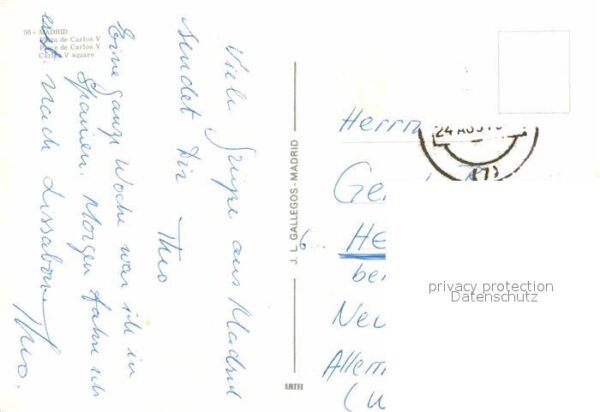 96 - MADRID
Plaza de Carlos V
Place de Carlos V
Carlos V square
Viele Grüße aus Madrid
sendet Dir
Theo
Eine ganze Woche war ich in
Spanien. Morgen fahre ich
erst nach Lissabon
Theo.
J. L. GALLEGOS-MADRID
Herrn
24 AGO
(17)
Ge
He
be
Neu
Allem
(W
privacy protection
Datenschutz